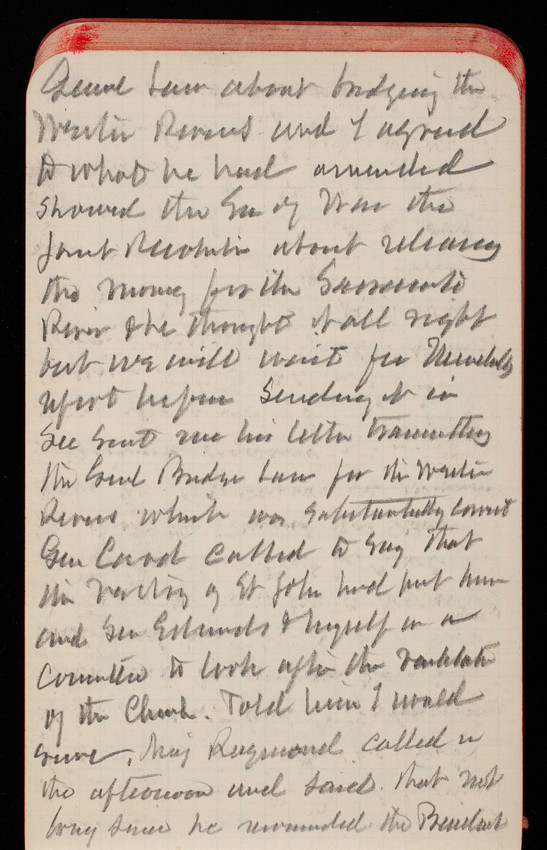 Genl Law about bridging the
Western Rivers and I agreed
to what he had amended
showed the Sec of War the
Joint Resolution about releasing
the money for the Sacramento
River & he thought it all right
but we will wait for
report before sending it in
Sec sent me his letter transmitting
the Genl Bridge Law for the Western
Rivers which was substantially correct
Gen called to say that
the Vestry of St John had put him
and Gen & myself on a
Committee to look after the ventilation
of the Church. Told him I would
serve. Maj Raymond called in
the afternoon and said that not
long since he the